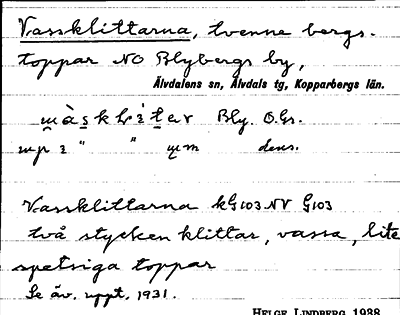 Vassklittarna, tvenne bergs-
toppar NO Blybergs by,
Älvdalens sn, Älvdals tg, Kopparbergs län.
Bly. O.Gr.
" " dens.
Vassklittarna kG103NV G103
två stycken klittar, vassa, lite
spetsiga toppar
Se äv. uppt. 1931.
HELGE LINDBERG 1938